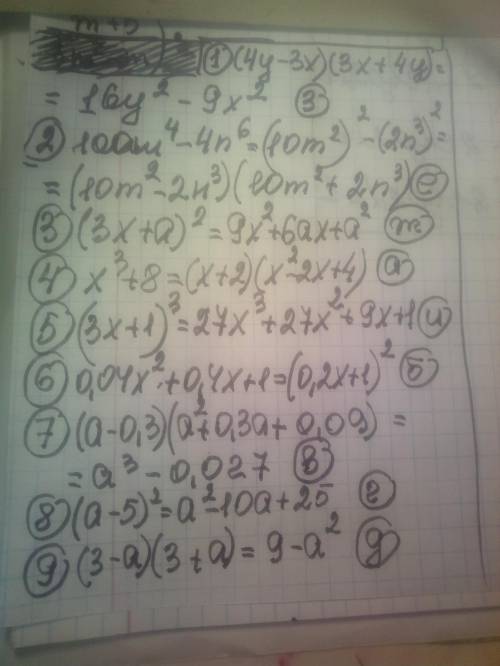 m+5
① (4y-3x)(3x+4y)=
= 16y² - 9x² ③
② 100m⁴-4n⁶=(10m²)²-(2n³)²=
=(10m²-2n³)(10m²+2n³) е
③ (3x+a)²=9x²+6ax+a² ж
④ x³+8=(x+2)(x²-2x+4) а
⑤ (3x+1)³=27x³+27x²+9x+1 и
⑥ 0,04x²+0,4x+1=(0,2x+1)² б
⑦ (a-0,3)(a²+0,3a+0,09) =
= a³-0,027 в
⑧ (a-5)²=a²-10a+25 г
⑨ (3-a)(3+a)=9-a² д